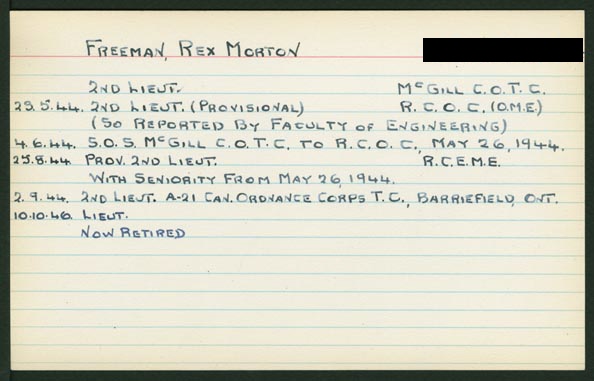 FREEMAN, REX MORTON
2ND LIEUT. MCGILL C.O.T.C.
23.5.44. 2ND LIEUT. (PROVISIONAL) R.C.O.C. (O.M.E.)
(SO REPORTED BY FACULTY OF ENGINEERING)
4.6.44. S.O.S. MCGILL C.O.T.C. TO R.C.O.C., MAY 26, 1944.
25.8.44 PROV. 2ND LIEUT. R.C.E.M.E.
WITH SENIORITY FROM MAY 26, 1944.
2.9.44. 2ND LIEUT. A-21 CAN. ORDNANCE CORPS T.C., BARRIEFIELD, ONT.
10.10.46. LIEUT.
NOW RETIRED